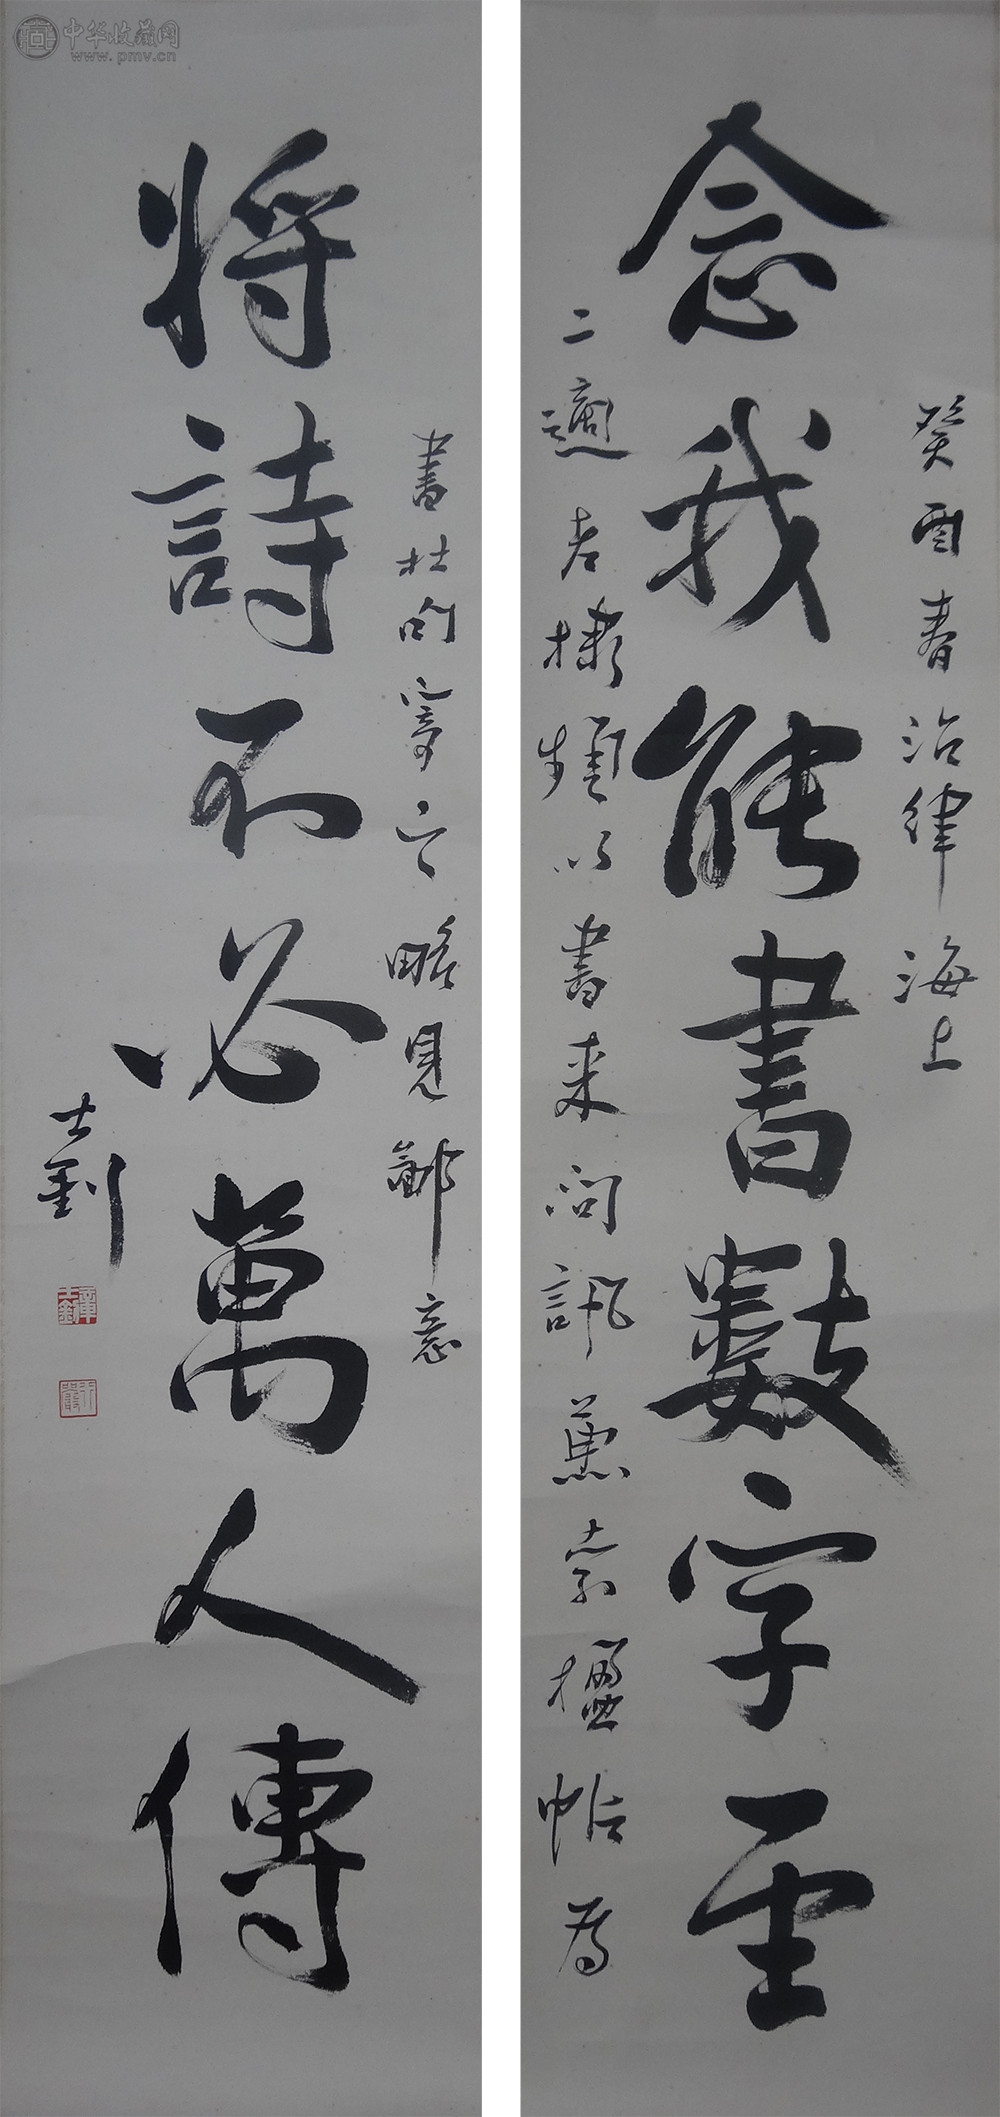 中华收藏网
www.pmv.cn
癸酉春治律海上
念我能書數字至
二適老棣頻以書来問訊兼索楹帖為
書杜句寄之略見鄙意
将詩不必萬人傳
士釗
章士釗
行嚴